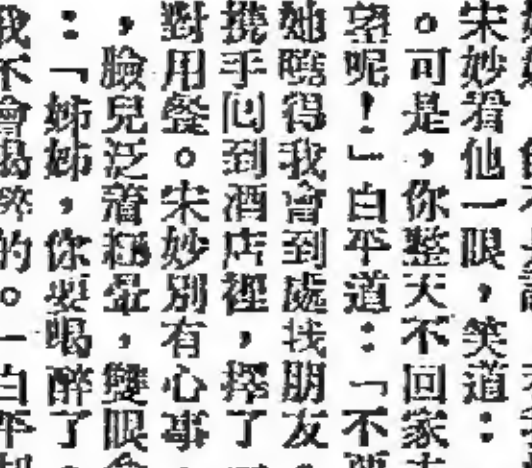 宋妙看他一眼，笑道：
。可是，你整天不回家
望呢！」白平道：「不
她曉得我會到處找朋友
攜手回到酒店裡，擇了
對用餐。宋妙別有心事
，臉兒泛着紅暈，雙眼
：「姊姊，你要喝醉了
我不會喝醉的。」白平